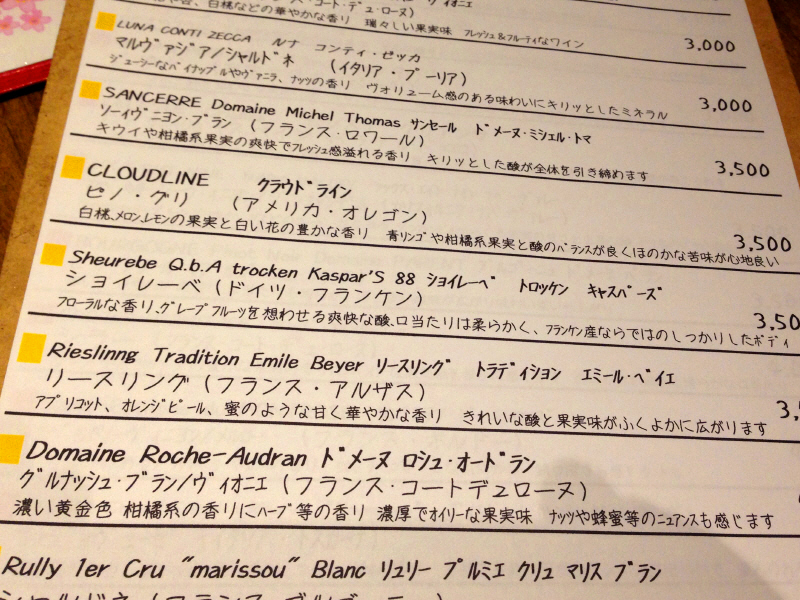 ・コート・デュ・ローヌ） ヴィオニエ
、白桃などの華やかな香り 瑞々しい果実味 フレッシュ&フルーティなワイン
3,000
LUNA CONTI ZECCA ルナ コンティ・ゼッカ
マルヴァジア/シャルドネ （イタリア・プーリア）
ジューシーなパイナップルやヴァニラ、ナッツの香り ヴォリューム感のある味わいにキリッとしたミネラル
3,000
SANCERRE Domaine Michel Thomas サンセール ドメーヌ・ミシェル・トマ
ソーイヴニヨン・ブラン （フランス・ロワール）
キウイや柑橘系果実の爽快でフレッシュ感溢れる香り キリッとした酸が全体を引き締めます
3,500
CLOUDLINE クラウドライン
ピノ・グリ （アメリカ・オレゴン）
白桃、メロン、レモンの果実と白い花の豊かな香り 青リンゴや柑橘系果実と酸のバランスが良くほのかな苦味が心地良い
3,500
Sheurebe Q.b.A trocken Kaspar'S 88 ショイレーベ トロッケン キャスパーズ
ショイレーベ（ドイツ・フランケン）
フローラルな香り、グレープフルーツを想わせる爽快な酸、口当たりは柔らかく、フランケン産ならではのしっかりしたボディ
3,50
Rieslinng Tradition Emile Beyer リースリング トラディション エミール・ベイエ
リースリング（フランス・アルザス）
アプリコット、オレンジピール、蜜のような甘く華やかな香り きれいな酸と果実味がふくよかに広がります
3,
Domaine Roche-Audran ドメーヌ ロシュ・オードラン
グルナッシュ・ブラン/ヴィオニエ（フランス・コートデュローヌ）
濃い黄金色 柑橘系の香りにハーブ等の香り 濃厚でオイリーな果実味 ナッツや蜂蜜等のニュアンスも感じます
Rully 1er Cru "marissou" Blanc リュリー プルミエ クリュ マリス ブラン
シャルドネ（フランス・ブルゴーニュ）